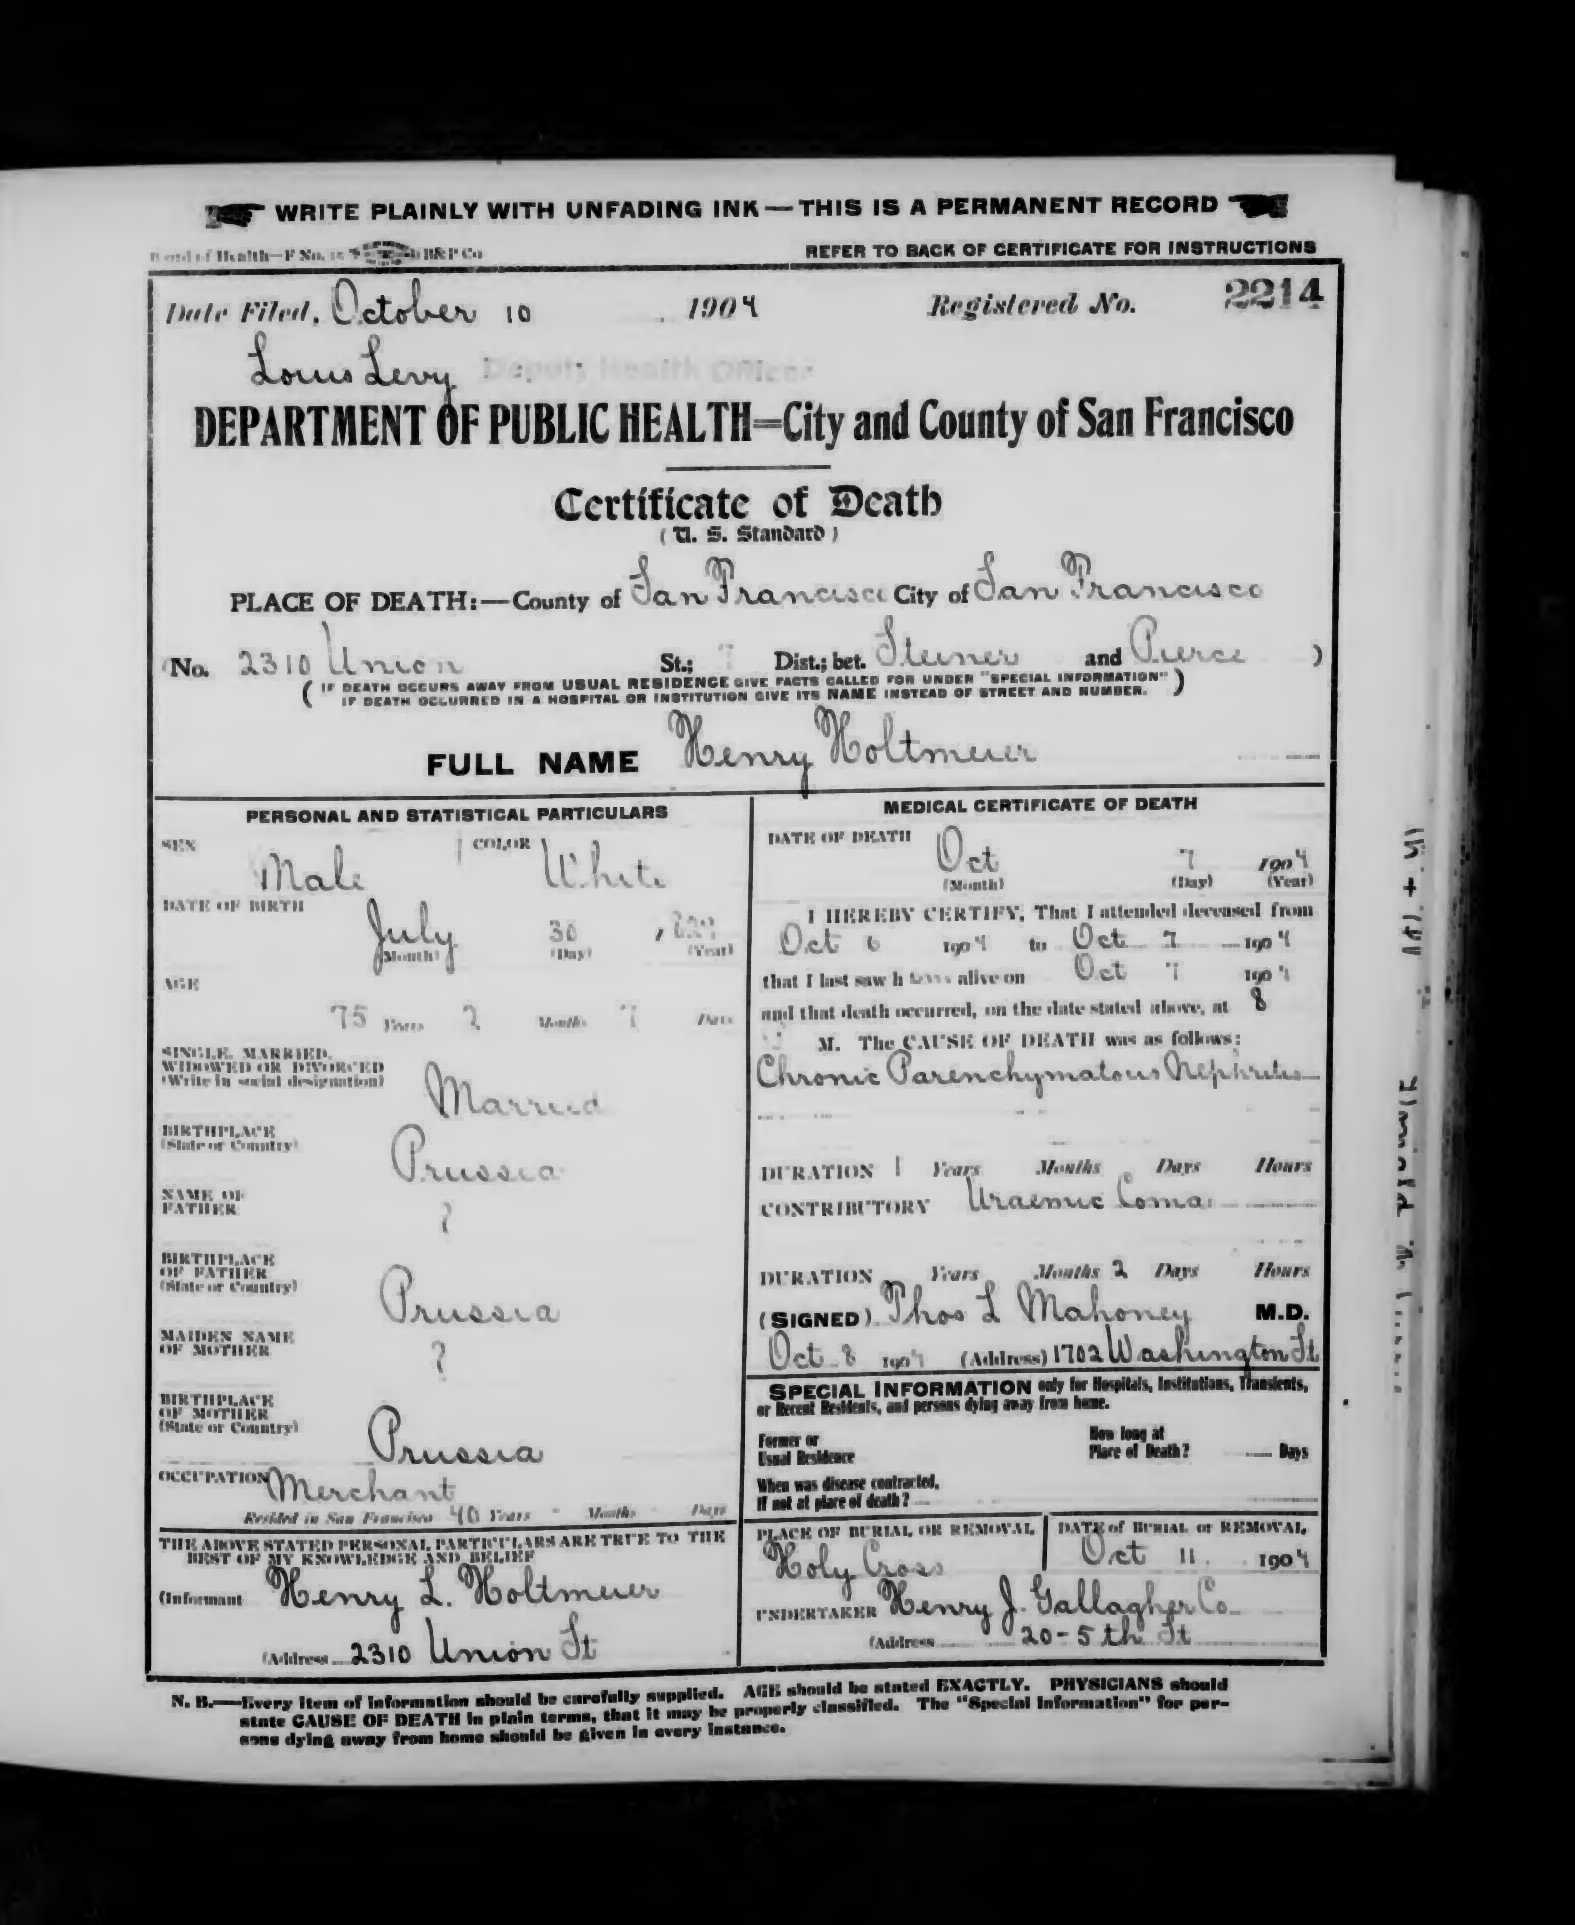 WRITE PLAINLY WITH UNFADING INK — THIS IS A PERMANENT RECORD
Board of Health—F No. B&P Co
REFER TO BACK OF CERTIFICATE FOR INSTRUCTIONS
Date Filed, October 10 1904 Registered No. 2214
Louis Levy Deputy Health Officer
DEPARTMENT OF PUBLIC HEALTH=City and County of San Francisco
Certificate of Death
( U. S. Standard )
PLACE OF DEATH:—County of San Francisco City of San Francisco
(No. 2310 Union St.; 7 Dist.; bet. Steiner and Pierce )
( IF DEATH OCCURS AWAY FROM USUAL RESIDENCE GIVE FACTS CALLED FOR UNDER "SPECIAL INFORMATION"
IF DEATH OCCURRED IN A HOSPITAL OR INSTITUTION GIVE ITS NAME INSTEAD OF STREET AND NUMBER. )
FULL NAME Henry Holtmeier
PERSONAL AND STATISTICAL PARTICULARS
SEX Male COLOR White
DATE OF BIRTH
July 30 1829
(Month) (Day) (Year)
AGE
75 Years 2 Months 7 Days
SINGLE, MARRIED,
WIDOWED OR DIVORCED
(Write in social designation) Married
BIRTHPLACE
(State or Country) Prussia
NAME OF
FATHER ?
BIRTHPLACE
OF FATHER
(State or Country) Prussia
MAIDEN NAME
OF MOTHER ?
BIRTHPLACE
OF MOTHER
(State or Country) Prussia
OCCUPATION Merchant
Resided in San Francisco 40 Years - Months - Days
THE ABOVE STATED PERSONAL PARTICULARS ARE TRUE TO THE
BEST OF MY KNOWLEDGE AND BELIEF
(Informant Henry L. Holtmeier
(Address 2310 Union St
MEDICAL CERTIFICATE OF DEATH
DATE OF DEATH Oct 7 1904
(Month) (Day) (Year)
I HEREBY CERTIFY, That I attended deceased from
Oct 6 1904 to Oct 7 1904
that I last saw h alive on Oct 7 1904
and that death occurred, on the date stated above, at 8
M. The CAUSE OF DEATH was as follows:
Chronic Parenchymatous Nephritis
DURATION 1 Years Months Days Hours
CONTRIBUTORY Uraemic Coma
DURATION Years Months 2 Days Hours
(SIGNED) Thos L Mahoney M.D.
Oct 8 1904 (Address) 1702 Washington St
SPECIAL INFORMATION only for Hospitals, Institutions, Transients,
or Recent Residents, and persons dying away from home.
Former or
Usual Residence
How long at
Place of Death? Days
When was disease contracted,
If not at place of death?
PLACE OF BURIAL OR REMOVAL DATE of BURIAL or REMOVAL
Holy Cross Oct 11 1904
UNDERTAKER Henry J. Gallagher Co
(Address 20-5th St
N. B.—Every item of information should be carefully supplied. AGE should be stated EXACTLY. PHYSICIANS should
state CAUSE OF DEATH in plain terms, that it may be properly classified. The "Special Information" for per-
sons dying away from home should be given in every instance.